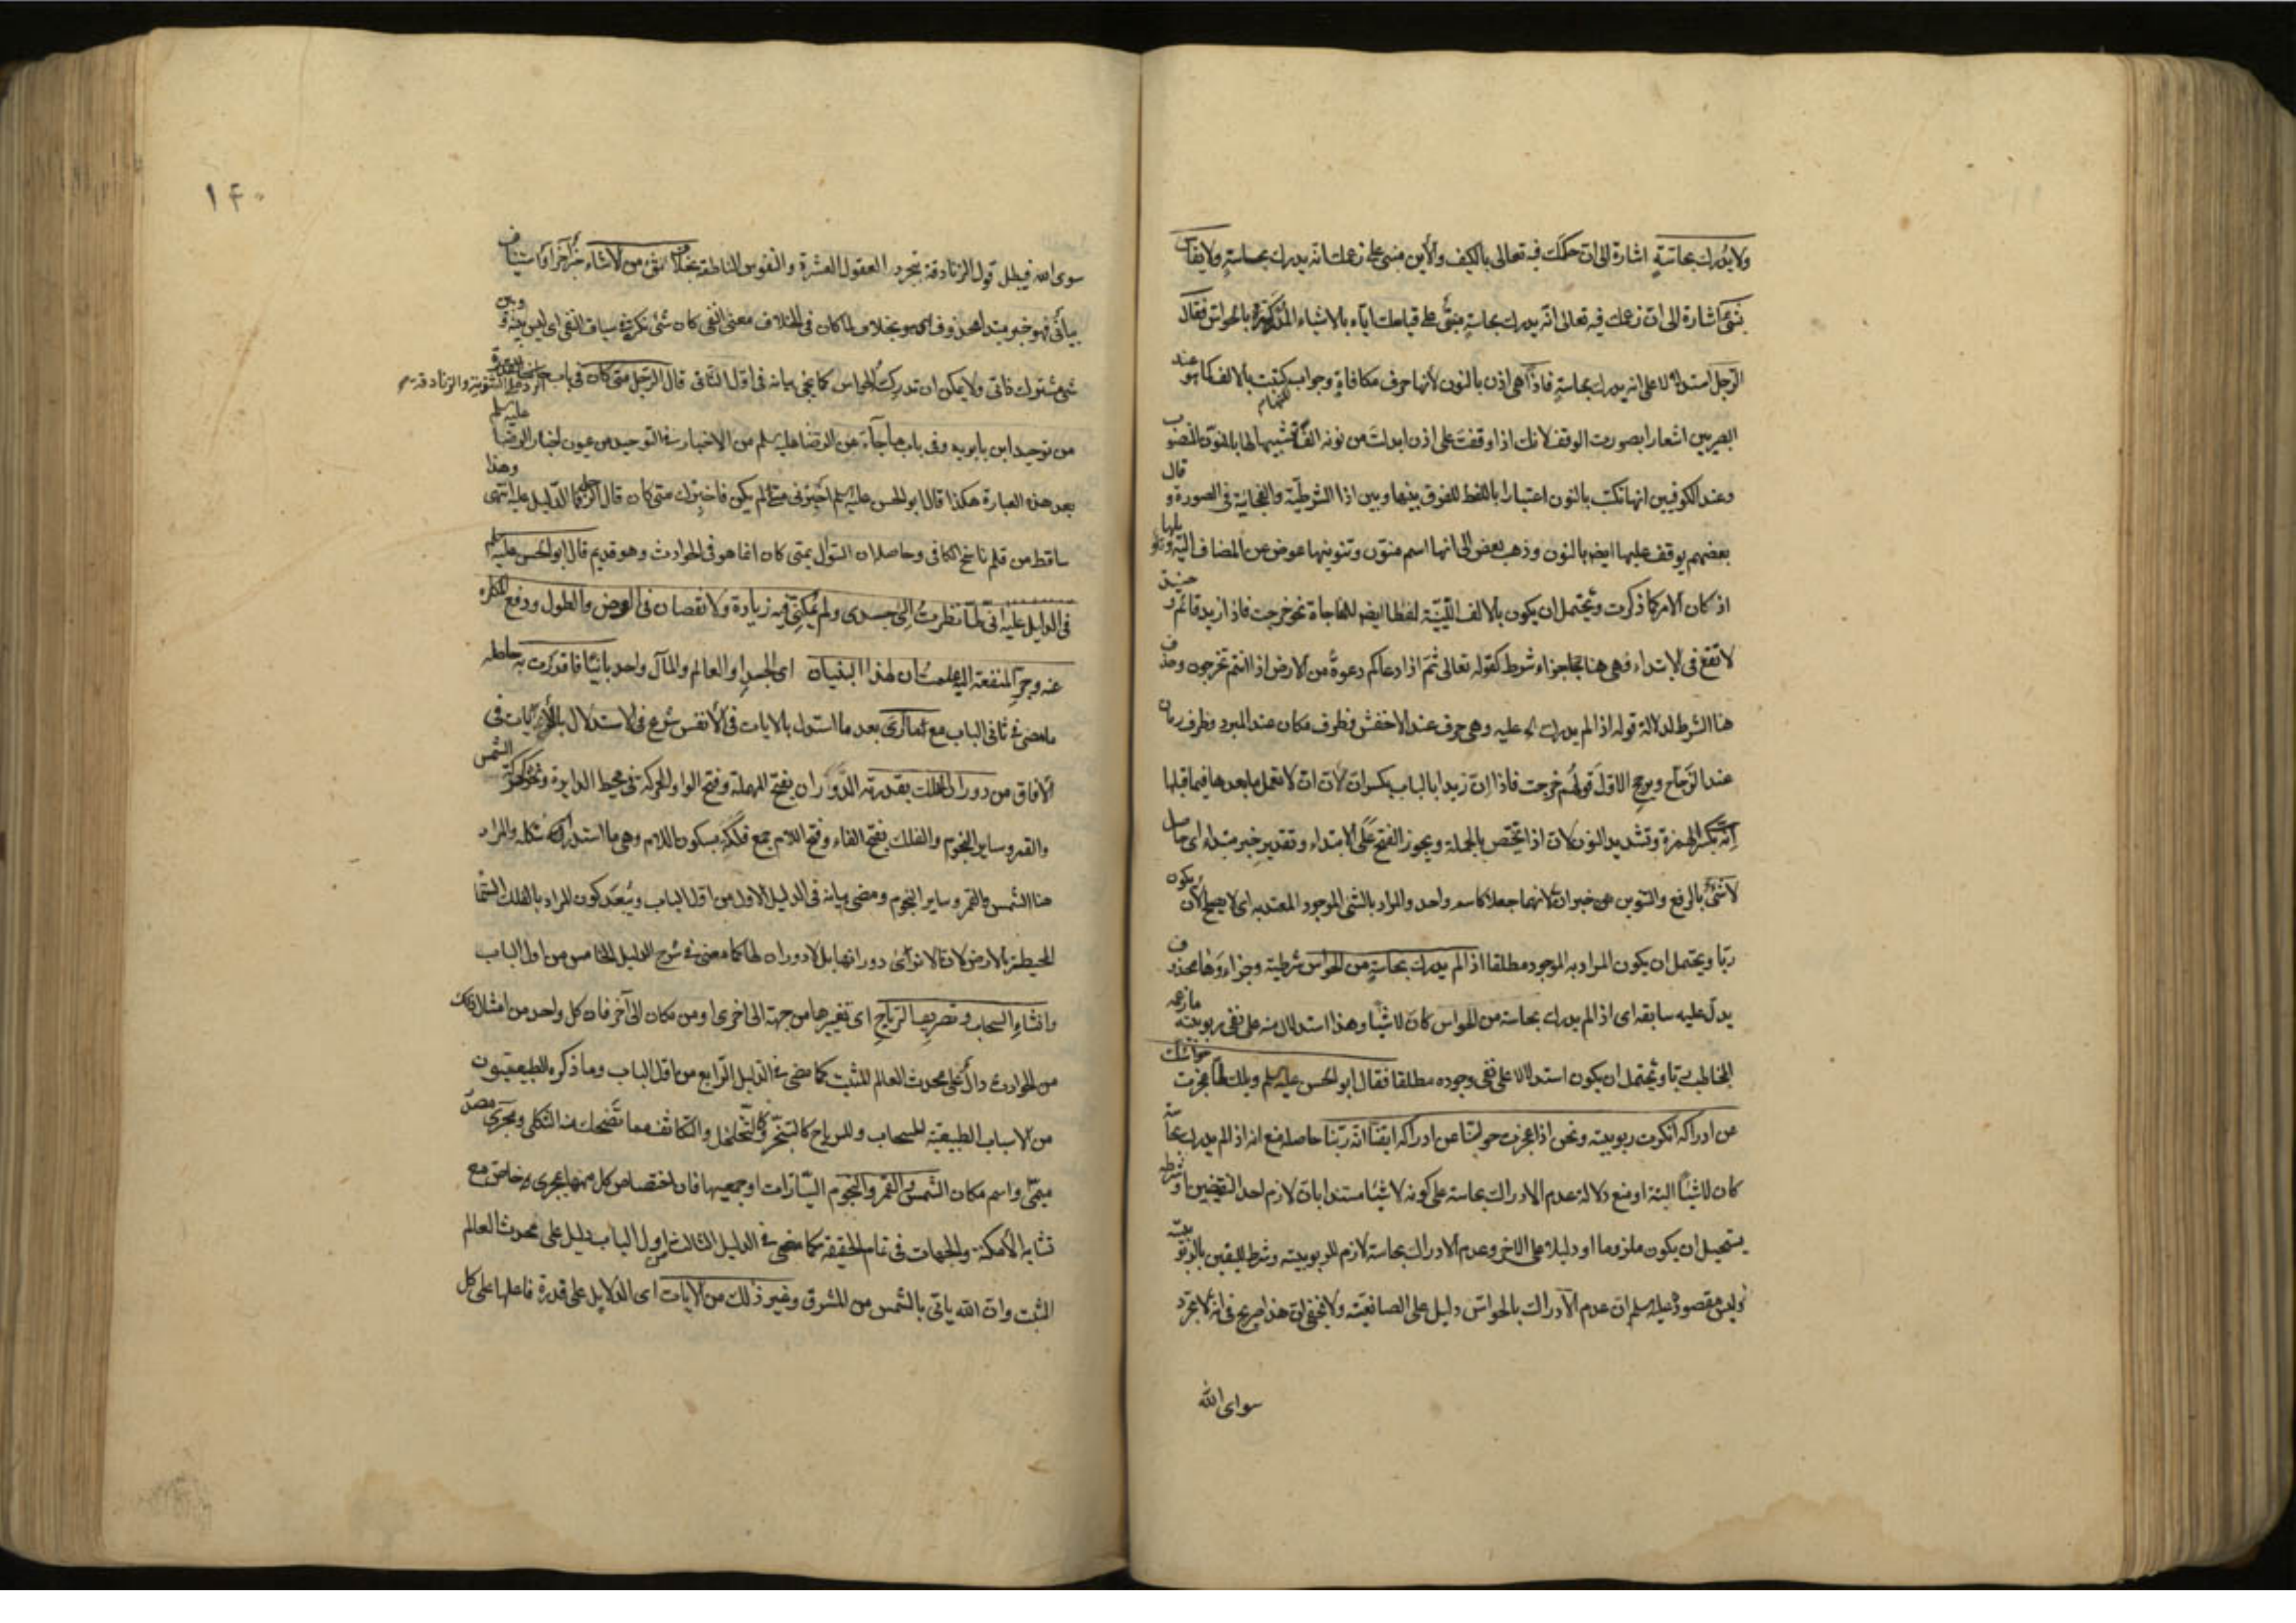 ولا يدرك بحاسة اشارة الى ان حكمك فيه تعالى بالكيف والاين مبنى على زعمك انه يدرك بحاسة ولا يقاس
بشئ اشارة الى ان زعمك فيه تعالى انه يدرك بحاسة مبنى على قياسك اياه بالاشياء المدركة بالحواس فقال
الرجل استدلالا على انه يدرك بحاسة فاذا هى اذن بالنون لانها حرف مكافاة وجواب كتبت بالالف كما هو عند
البصريين اشعارا بصورت الوقف لانك اذا وقفت على اذن ابدلت من نونه الفا تشبيها لها بالمنون المنصوب
وعند الكوفيين انها تكتب بالنون اعتبارا باللفظ للفرق بينها وبين اذا الشرطية والفجائية فى الصورة وقال
بعضهم يوقف عليها ايضا بالنون وذهب بعض الى انها اسم منون وتنوينها عوض عن المضاف اليه
اذ كان الامر كما ذكرت ويحتمل ان يكون بالالف اللينة لفظا ايضا للمفاجاة نحو خرجت فاذا زيد قائم و حينئذ
لا تقع فى الابتداء وهى هنا جزاء شرط كقوله تعالى ثم اذا دعاكم دعوة من الارض اذا انتم تخرجون وحذف
هنا الشرط لدلالة قوله اذا لم يدرك الخ عليه وهى حرف عند الاخفش وظرف مكان عند المبرد وظرف زمان
عند الزجاج ويرجح الاول قولهم خرجت فاذا ان زيدا بالباب بكسر ان لان ان لا تعمل ما بعدها فيما قبلها
انه بكسر الهمزة وتشديد النون لان اذا تختص بالجملة ويجوز الفتح على الابتداء وتقدير خبر مبتداء اى حاصل
لا شئ بالرفع والتنوين خبر ان لانهما جعلا كاسم واحد والمراد بالشئ الموجود المعتد به اى لا يصلح لان يكون
ربا ويحتمل ان يكون المراد به الموجود مطلقا اذا لم يدرك بحاسة من الحواس شرطية وجزاءها محذوف
يدل عليه سابقه اى اذا لم يدرك بحاسة من الحواس كان لا شيئا وهذا استدلال منه على نفى ربوبية ما زعمه
المخاطب ربا ويحتمل ان يكون استدلالا على نفى وجوده مطلقا فقال ابو الحسن عليه سلم ويلك لما عجزت حواسك
عن ادراكه انكرت ربوبيته ونحن اذا عجزت حواسنا عن ادراكه ايقنا انه ربنا حاصله منع انه اذا لم يدرك بحاسة
كان لا شيئا البتة او منع دلالة عدم الادراك بحاسة على كونه لا شيئا مستندا بان لازم احد النقيضين او شرطه
يستحيل ان يكون ملزوما او دليلا على الاخر وعدم الادراك بحاسة لازم للربوبية وشرط لليقين بالربوبية
وليس مقصوده عليه سلم ان عدم الادراك بالحواس دليل على الصانعية ولا يخفى ان هذا صريح فى انه لا مجرد
سواى الله
١٤٠
سوى الله فيبطل قول الزنادقة بتجرد العقول العشرة والنفوس الناطقة بخلاف شئ من الاشياء خبر آخر او استيناف
بيانى فهو خبر مبتدا محذوف اى هو بخلاف لما كان فى الخلاف معنى النفى كان شئ نكرة فى سياق النفى اى ليس بينه وبين
شئ مشترك ذاتى ولا يمكن ان تدركه الحواس كما يجئ بيانه فى اول الثانى قال الرجل متى كان فى باب
الرد على الثنوية والزنادقة
من توحيد ابن بابويه وفى باب ما جاء عن الرضا عليه سلم من الاخبار فى التوحيد من عيون اخبار الرضا عليه سلم
بعد هذه العبارة هكذا قال ابو الحسن عليه سلم اخبرنى متى لم يكن فاخبرك متى كان قال الرجل فما الدليل عليه انتهى وهذا
ساقط من قلم ناسخ الكافى وحاصله ان السؤال بمتى كان انما هو فى الحوادث وهو قديم قال ابو الحسن عليه سلم
فى الدليل عليه انى لما نظرت الى جسدى ولم يمكنى فيه زيادة ولا نقصان فى العرض والطول ودفع المكاره
عنه وجر المنفعة اليه علمت ان لهذا البنيان اى الجسد او العالم والمآل واحد بانيا فاقررت به حاصله
ما مضى فى ثانى الباب مع ما ارى بعد ما استدل بالايات فى الانفس شرع فى الاستدلال بالايات فى
الآفاق من دوران الفلك بقدرته الدوران بفتح المهملة وفتح الواو الحركة فى محيط الدايرة ونحو حركة الشمس
والقمر وساير النجوم والفلك بفتح الفاء وفتح اللام جمع فلكة بسكون اللام وهى ما استدار شكله والمراد
هنا الشمس والقمر وساير النجوم ومضى بيانه فى الدليل الاول من اول الباب ويبعد كون المراد بالفلك السما
المحيطة بالارض لانا لا نرى دورانها بل لا دوران لها كما مضى فى شرح الدليل الخامس من اول الباب
وانشاء السحاب وتصريف الرياح اى تغييرها من جهة الى اخرى او من مكان الى آخر فان كل واحد من امثال ذلك
من الحوادث دال على محدث العالم المثبت كما مضى فى الدليل الرابع من اول الباب وما ذكره الطبيعيون
من الاسباب الطبيعية للسحاب وللرياح كالتبخر وكالتخلخل والتكاثف مما تضحك منه الثكلى ومجرى مصدر
ميمى واسم مكان الشمس والقمر والنجوم السيارات او جميعها فان اختصاص كل منها بمجرى خاص مع
تشابه الامكنة والجهات فى تمام الحقيقة كما مضى فى الدليل الثالث من اول الباب دليل على محدث العالم
المثبت وان الله ياتى بالشمس من المشرق وغير ذلك من الايات اى الدلايل على قدرة فاعلها على كل